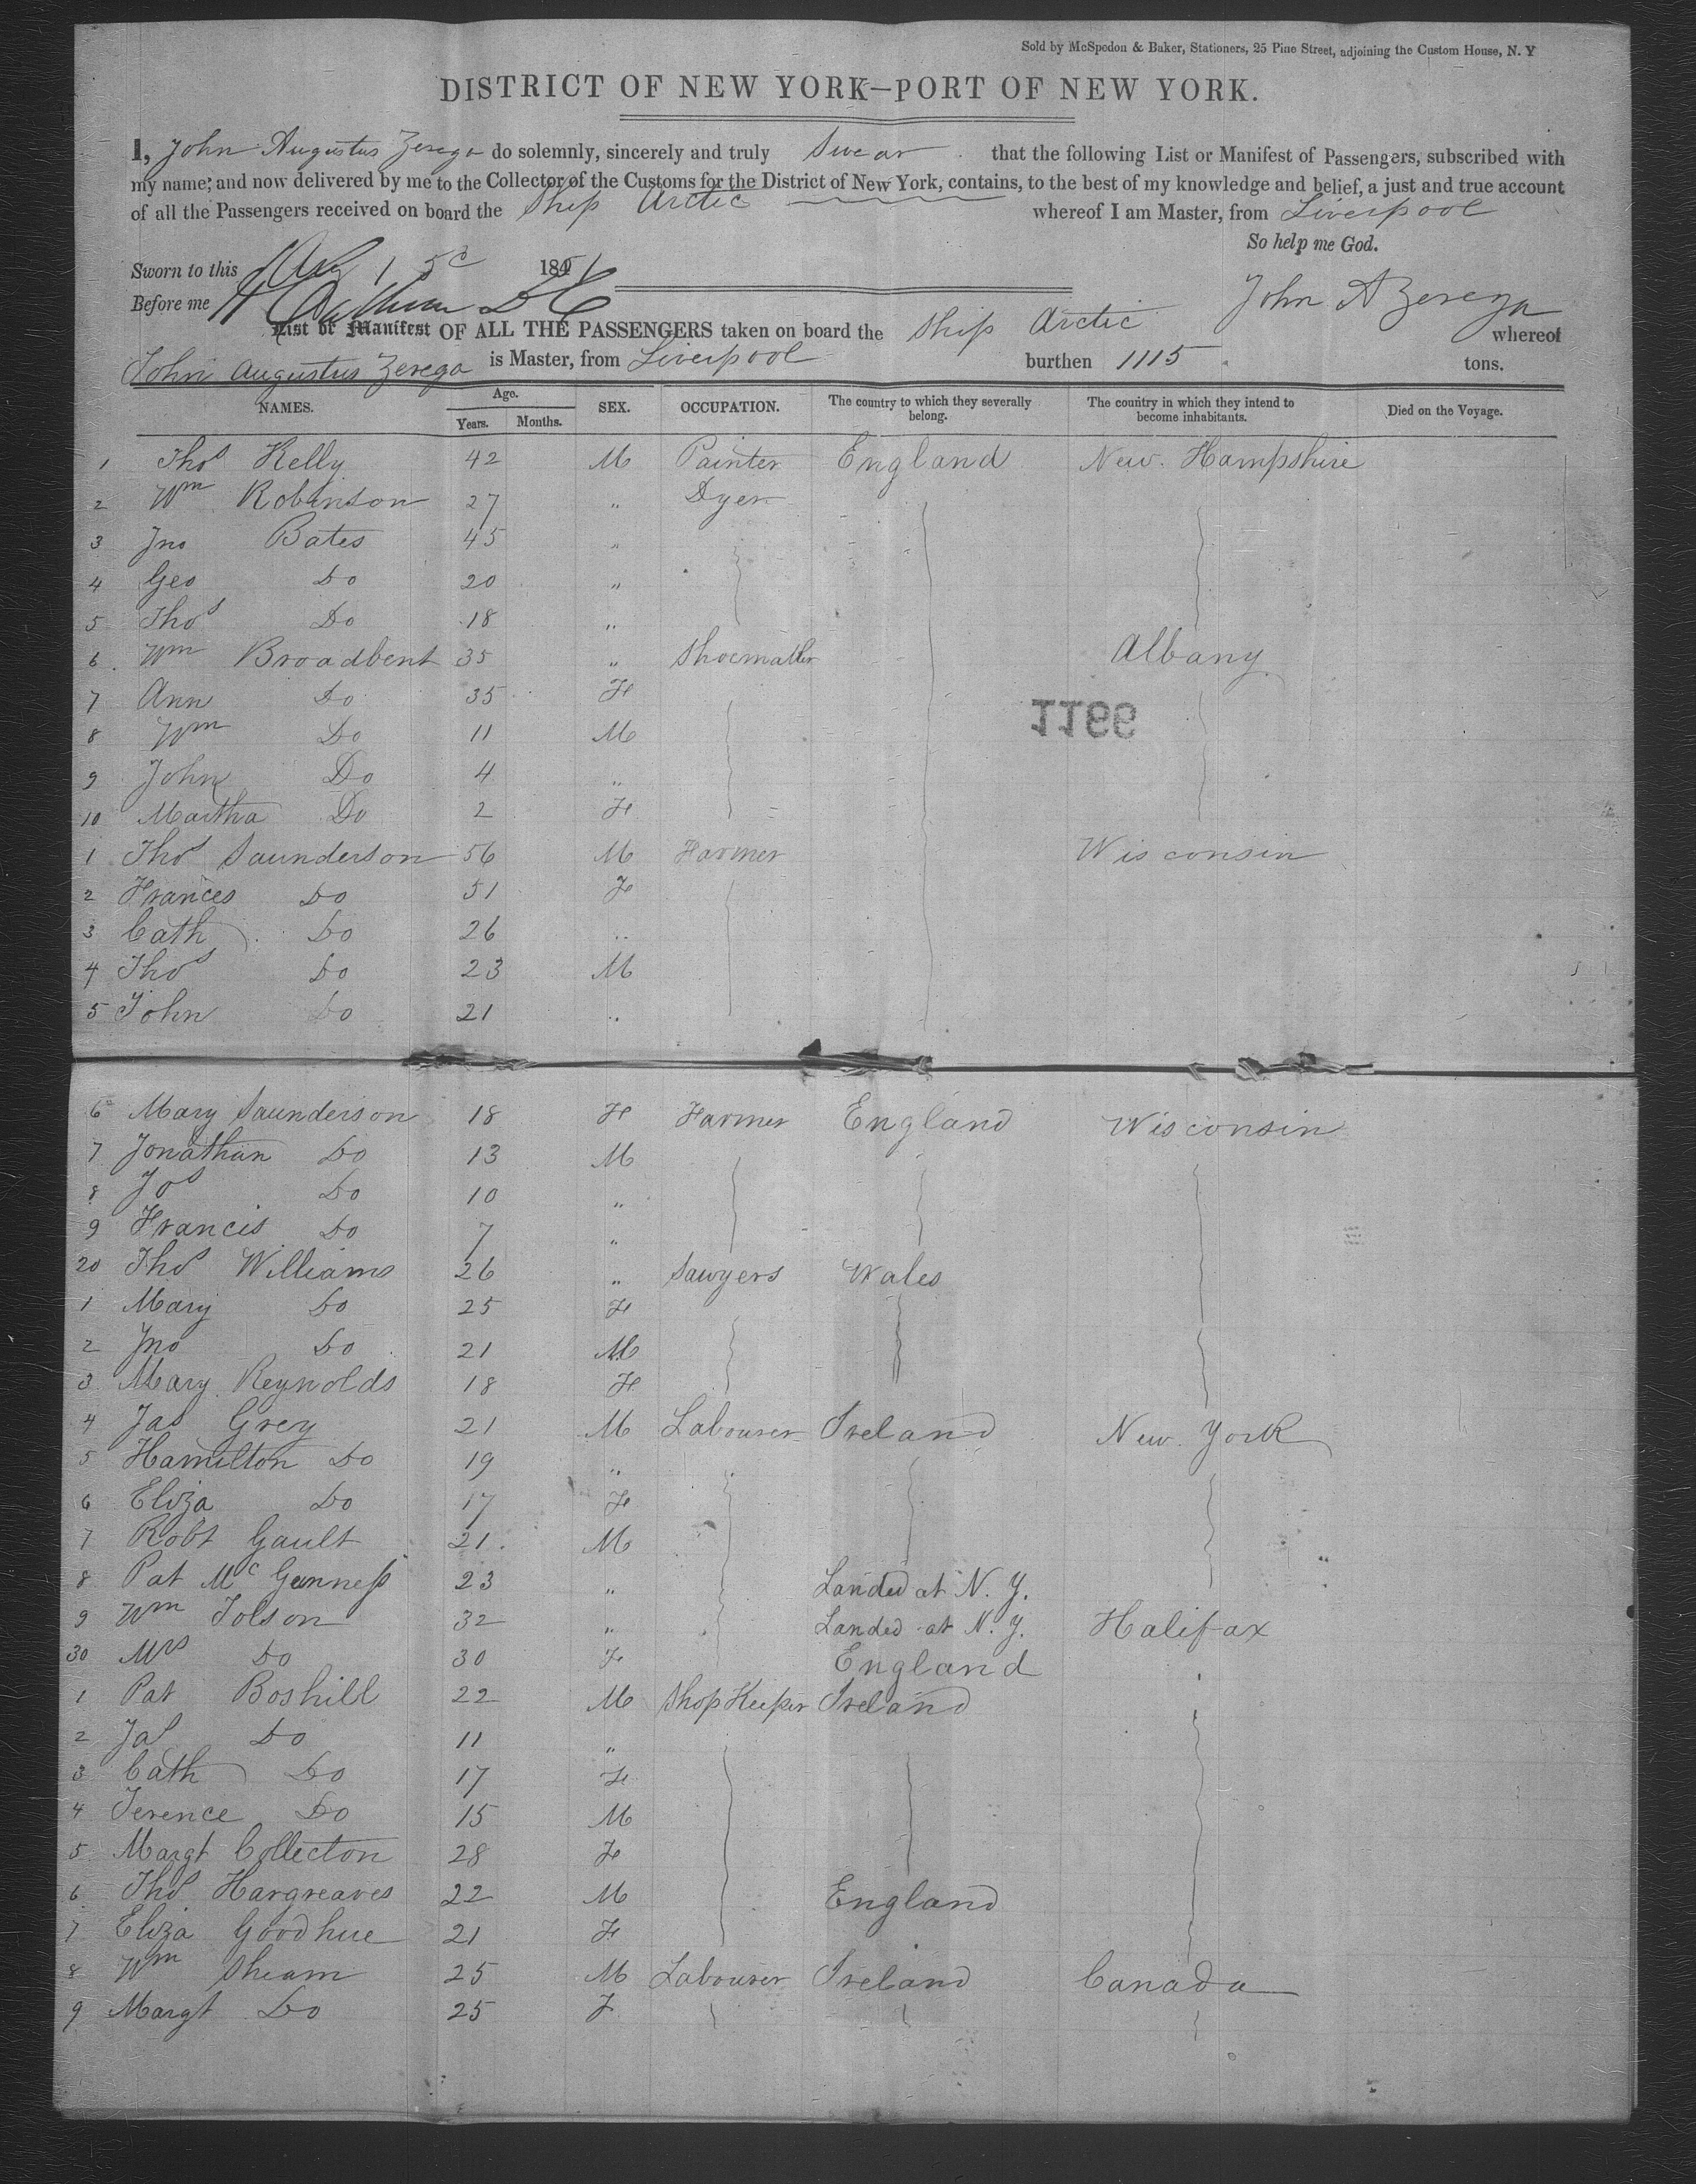 Sold by McSpedon & Baker, Stationers, 25 Pine Street, adjoining the Custom House, N. Y
DISTRICT OF NEW YORK—PORT OF NEW YORK.
I, John Augustus Zerega do solemnly, sincerely and truly Swear that the following List or Manifest of Passengers, subscribed with
my name, and now delivered by me to the Collector of the Customs for the District of New York, contains, to the best of my knowledge and belief, a just and true account
of all the Passengers received on board the Ship Arctic whereof I am Master, from Liverpool
So help me God.
Sworn to this 185
Before me
John A Zerega
List or Manifest OF ALL THE PASSENGERS taken on board the Ship Arctic whereof
John Augustus Zerega is Master, from Liverpool burthen 1115 tons.
NAMES. Age. Years. Months. SEX. OCCUPATION. The country to which they severally belong. The country in which they intend to become inhabitants. Died on the Voyage.
1 Thos Kelly 42 M Painter England New Hampshire
2 Wm Robinson 27 " Dyer
3 Jno Bates 45 "
4 Geo Do 20 "
5 Thos Do 18 "
6 Wm Broadbent 35 " Shoemaker Albany
7 Ann Do 35 F
1166
8 Wm Do 11 M
9 John Do 4 "
10 Martha Do 2 F
1 Thos Saunderson 56 M Farmer Wisconsin
2 Frances Do 51 F
3 Cath Do 26 "
4 Thos Do 23 M
5 John Do 21 "
6 Mary Saunderson 18 F Farmer England Wisconsin
7 Jonathan Do 13 M
8 Jos Do 10 "
9 Francis Do 7 "
20 Thos Williams 26 " Sawyers Wales
1 Mary Do 25 F
2 Jno Do 21 M
3 Mary Reynolds 18 F
4 Jas Grey 21 M Labourer Ireland New York
5 Hamilton Do 19 "
6 Eliza Do 17 F
7 Robt Gault 21 M
8 Pat Mc Gunness 23 " Landed at N. Y.
9 Wm Tolson 32 " Landed at N. Y. Halifax
30 Mrs Do 30 F England
1 Pat Boshill 22 M Shop Keeper Ireland
2 Jas Do 11 "
3 Cath Do 17 F
4 Terence Do 15 M
5 Margt Collecton 28 F
6 Thos Hargreaves 22 M England
7 Eliza Goodhue 21 F
8 Wm Sheam 25 M Labourer Ireland Canada
9 Margt Do 25 F